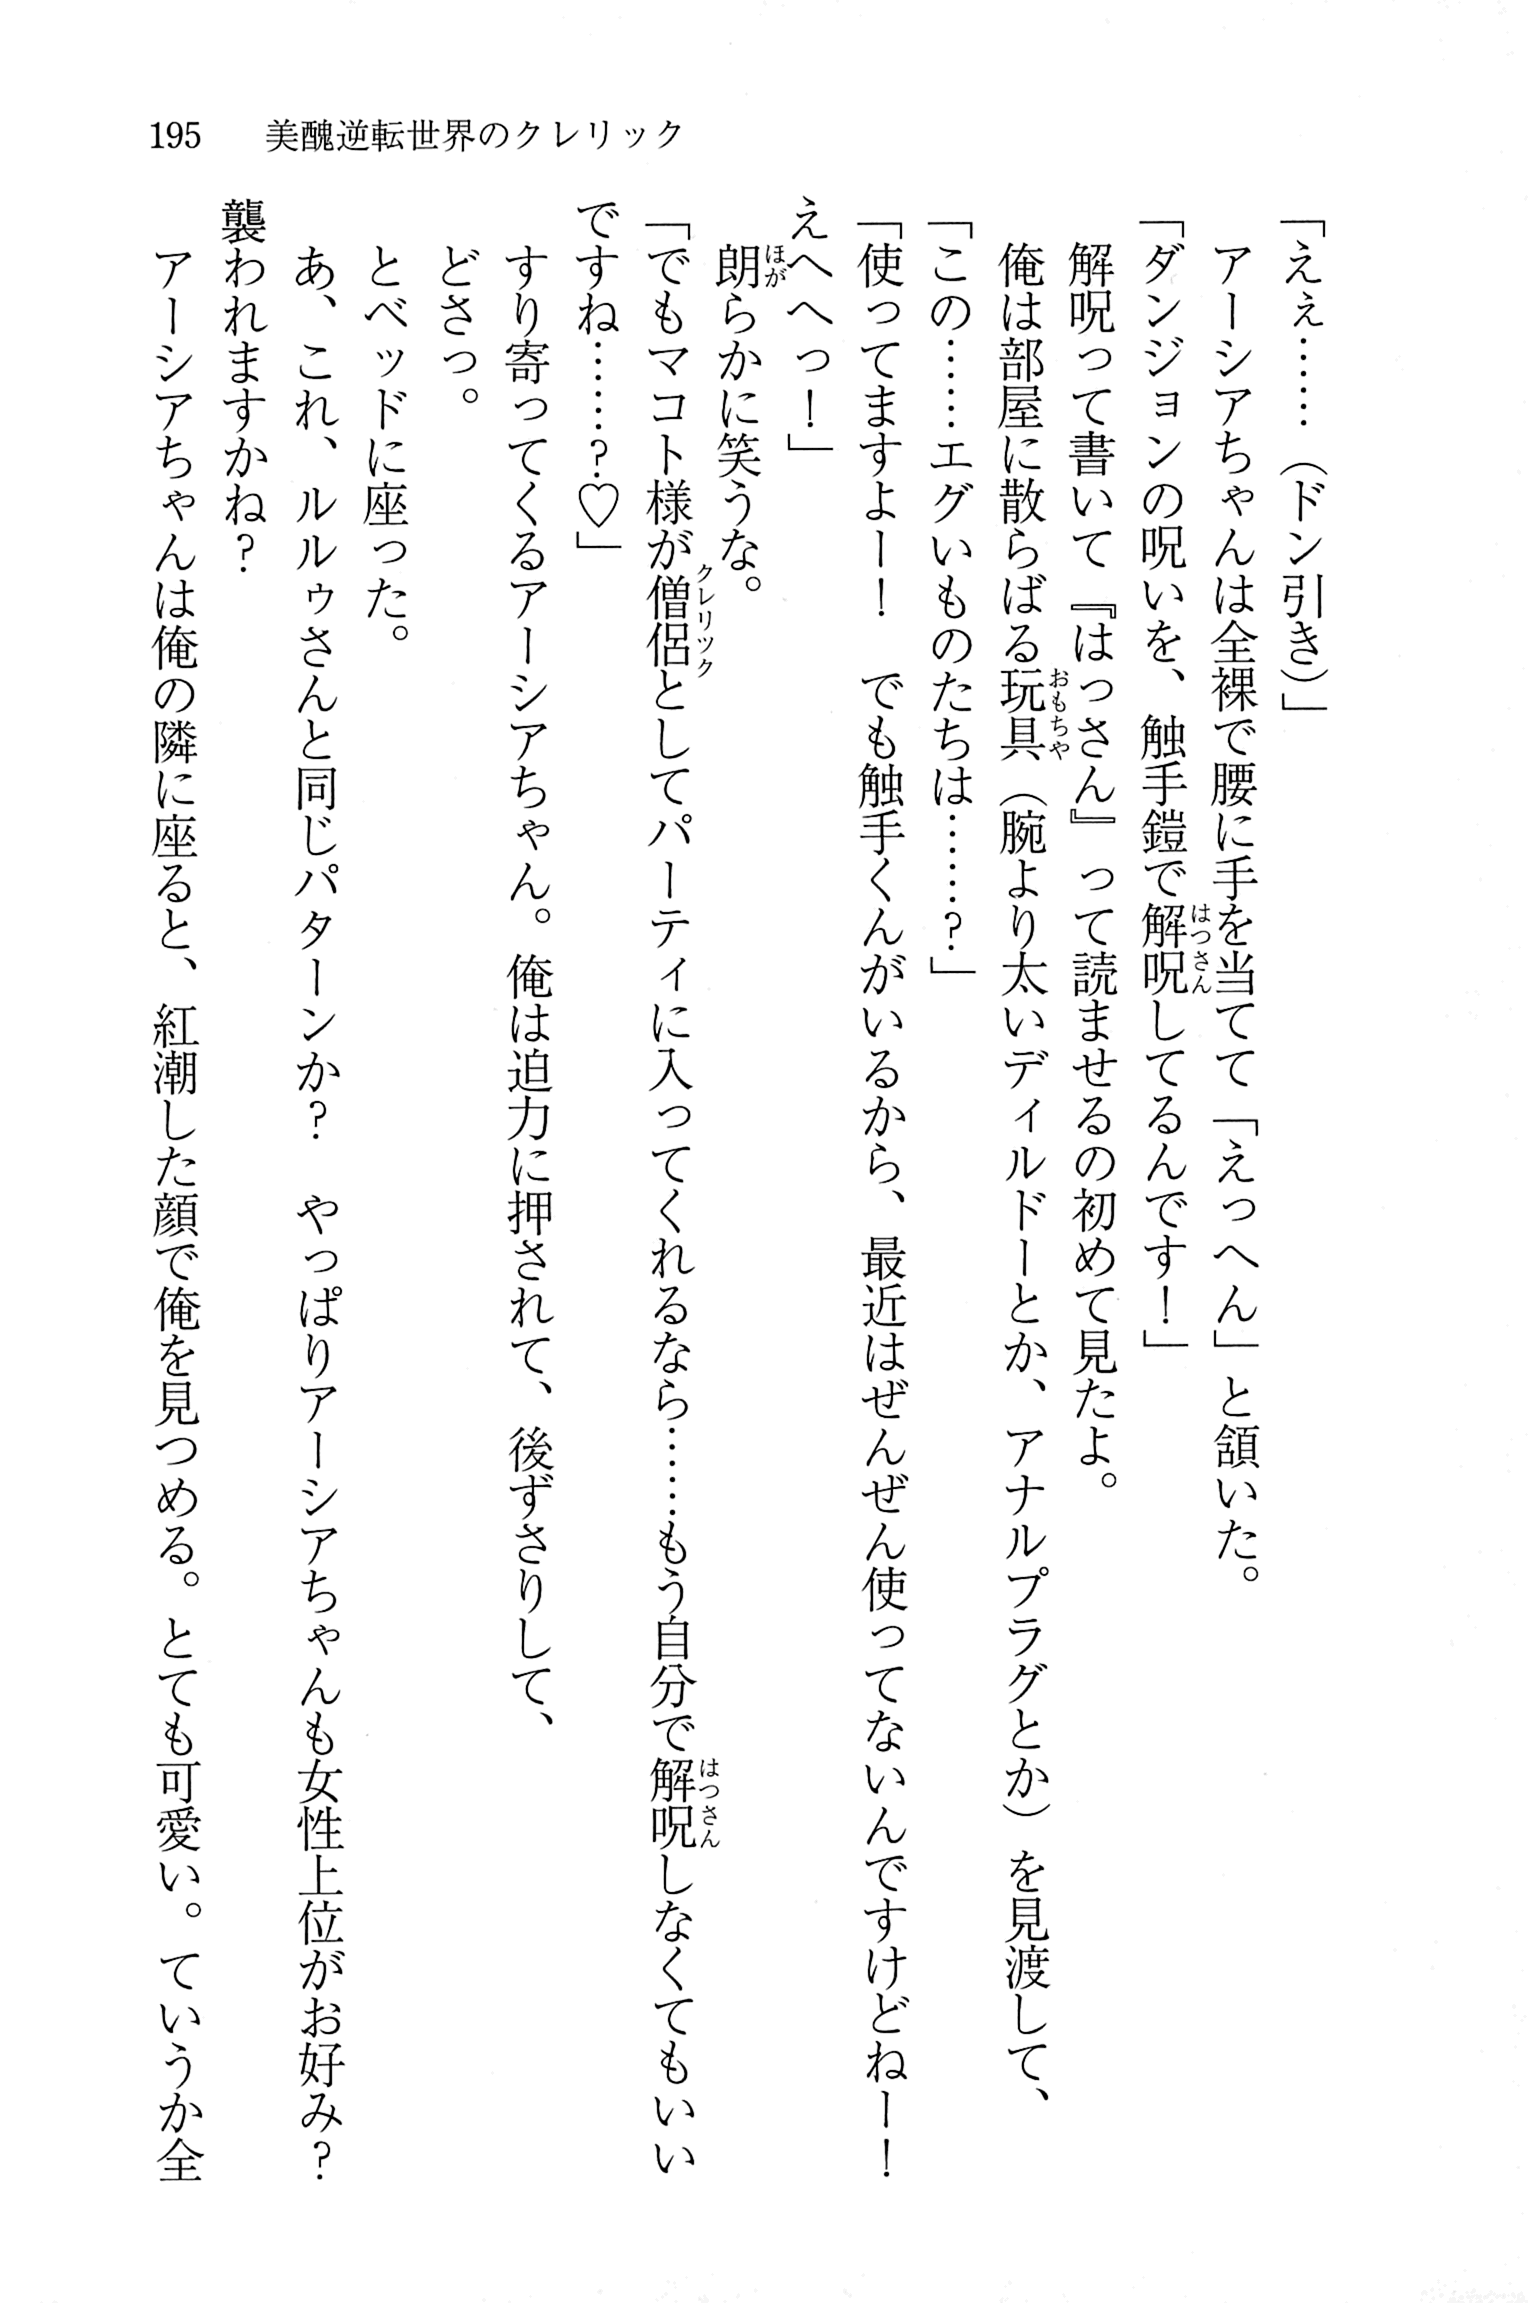 195　美醜逆転世界のクレリック
「ええ……（ドン引き）」
アーシアちゃんは全裸で腰に手を当てて「えっへん」と頷いた。
「ダンジョンの呪いを、触手鎧で解呪してるんです！」
解呪って書いて『はっさん』って読ませるの初めて見たよ。
俺は部屋に散らばる玩具（腕より太いディルドーとか、アナルプラグとか）を見渡して、
「この……エグいものたちは……？」
「使ってますよー！　でも触手くんがいるから、最近はぜんぜん使ってないんですけどねー！
えへへっ！」
朗らかに笑うな。
「でもマコト様が僧侶としてパーティに入ってくれるなら……もう自分で解呪しなくてもいい
ですね……？♡」
すり寄ってくるアーシアちゃん。俺は迫力に押されて、後ずさりして、
どさっ。
とベッドに座った。
あ、これ、ルルゥさんと同じパターンか？　やっぱりアーシアちゃんも女性上位がお好み？
襲われますかね？
アーシアちゃんは俺の隣に座ると、紅潮した顔で俺を見つめる。とても可愛い。ていうか全